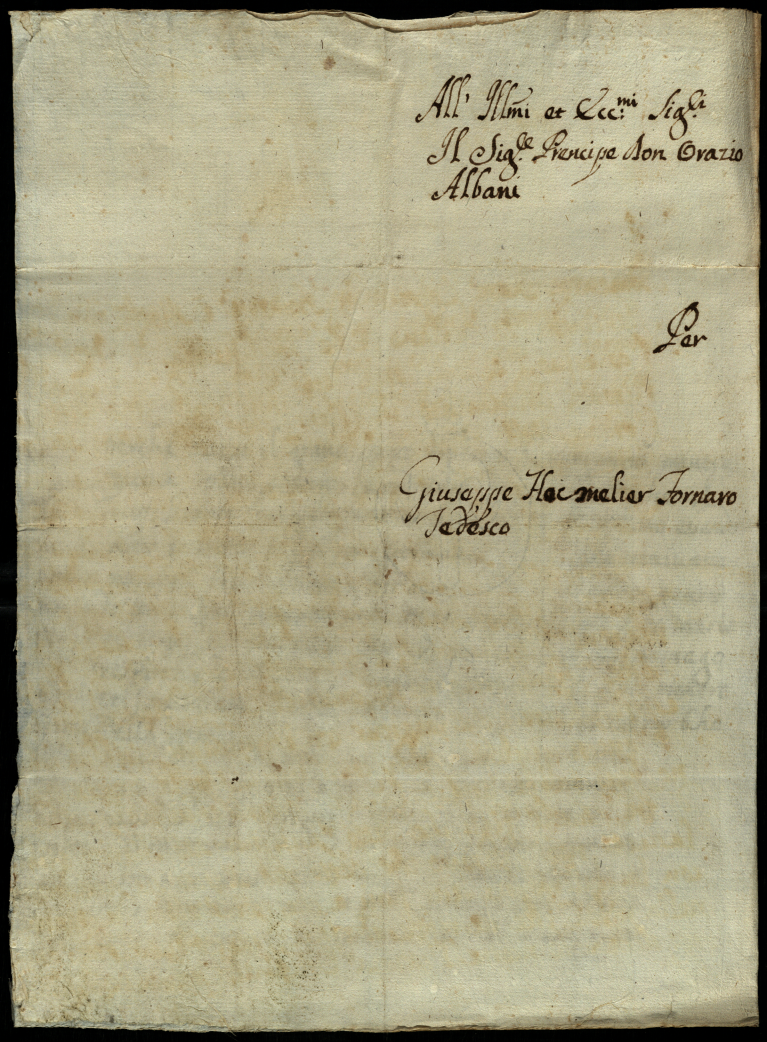 All' Illmi et Ecc:mi Sig:ri
Il Sig:re Prencipe don Orazio
Albani
Per
Giuseppe Hecmelier Fornaro
Tedesco